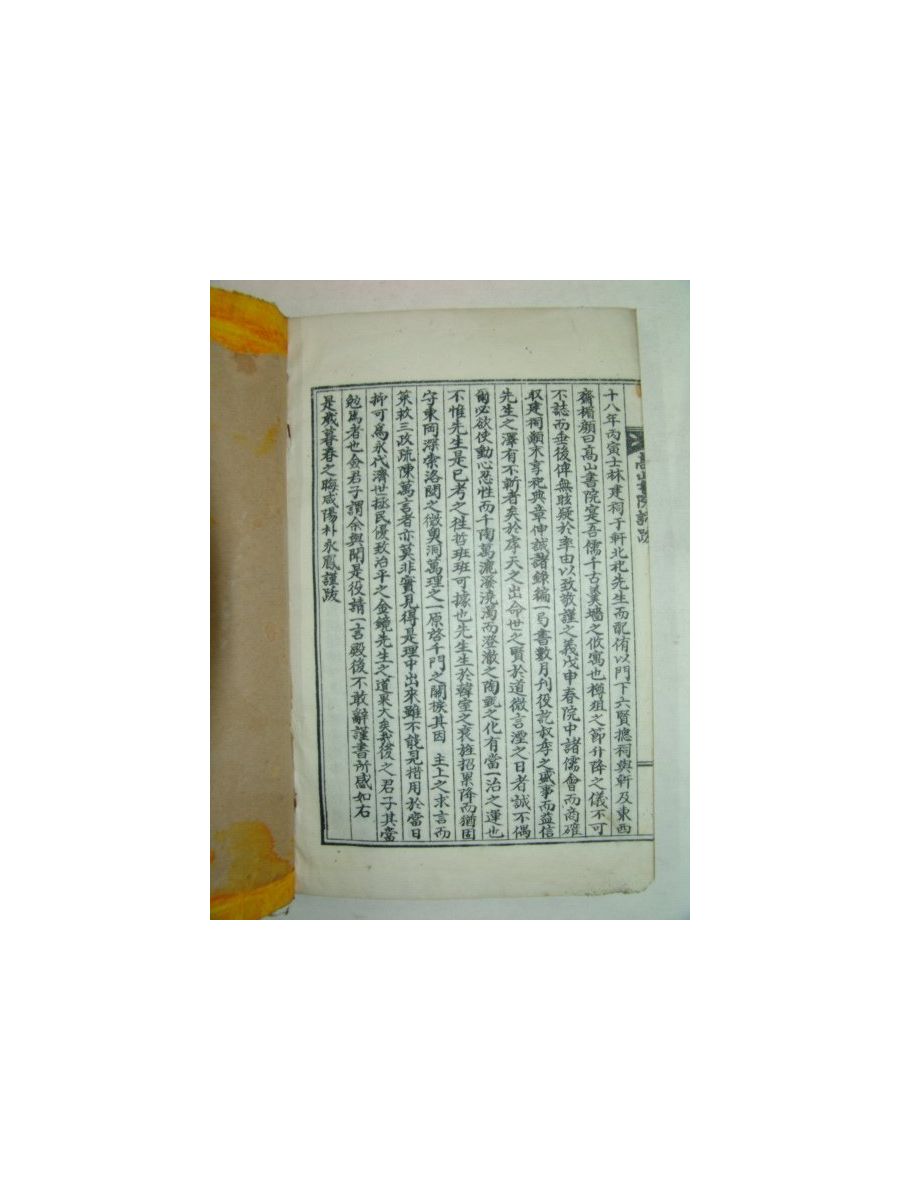 高山書院誌跋
十八年丙寅士林建祠于軒北祀先生而配侑以門下六賢摠祠與軒及東西
齋楣顔曰高山書院寔吾儒千古羹墻之攸寓也樽俎之節升降之儀不可
不誌而垂後俾無眩疑於率由以致敬謹之義戊申春院中諸儒會而商確
収建祠顚末享祀典章伸誠諸錄編一局書數月刋役訖叔季之盛事而益信
先生之澤有不斬者矣於虖天之出命世之賢於道微言湮之日者誠不偶
爾必欲使動心忍性而千陶萬漉潑澆濁而澄澈之陶甄之化有當一治之運也
不惟先生是已考之徃哲班班可據也先生生於韓室之衰旌招累降而猶固
守東岡深索洛閩之微奥洞萬理之一原啓千門之關棙其因 主上之求言而
策救三政疏陳萬言者亦莫非實見得是理中出來雖不能見措用於當日
抑可爲永代濟世拯民優致治平之金鏡先生之道果大矣我後之君子其當
勉焉者也僉君子謂余與聞是役請一言殿後不敢辭謹書所感如右
是歲暮春之晦咸陽朴永鳳謹跋